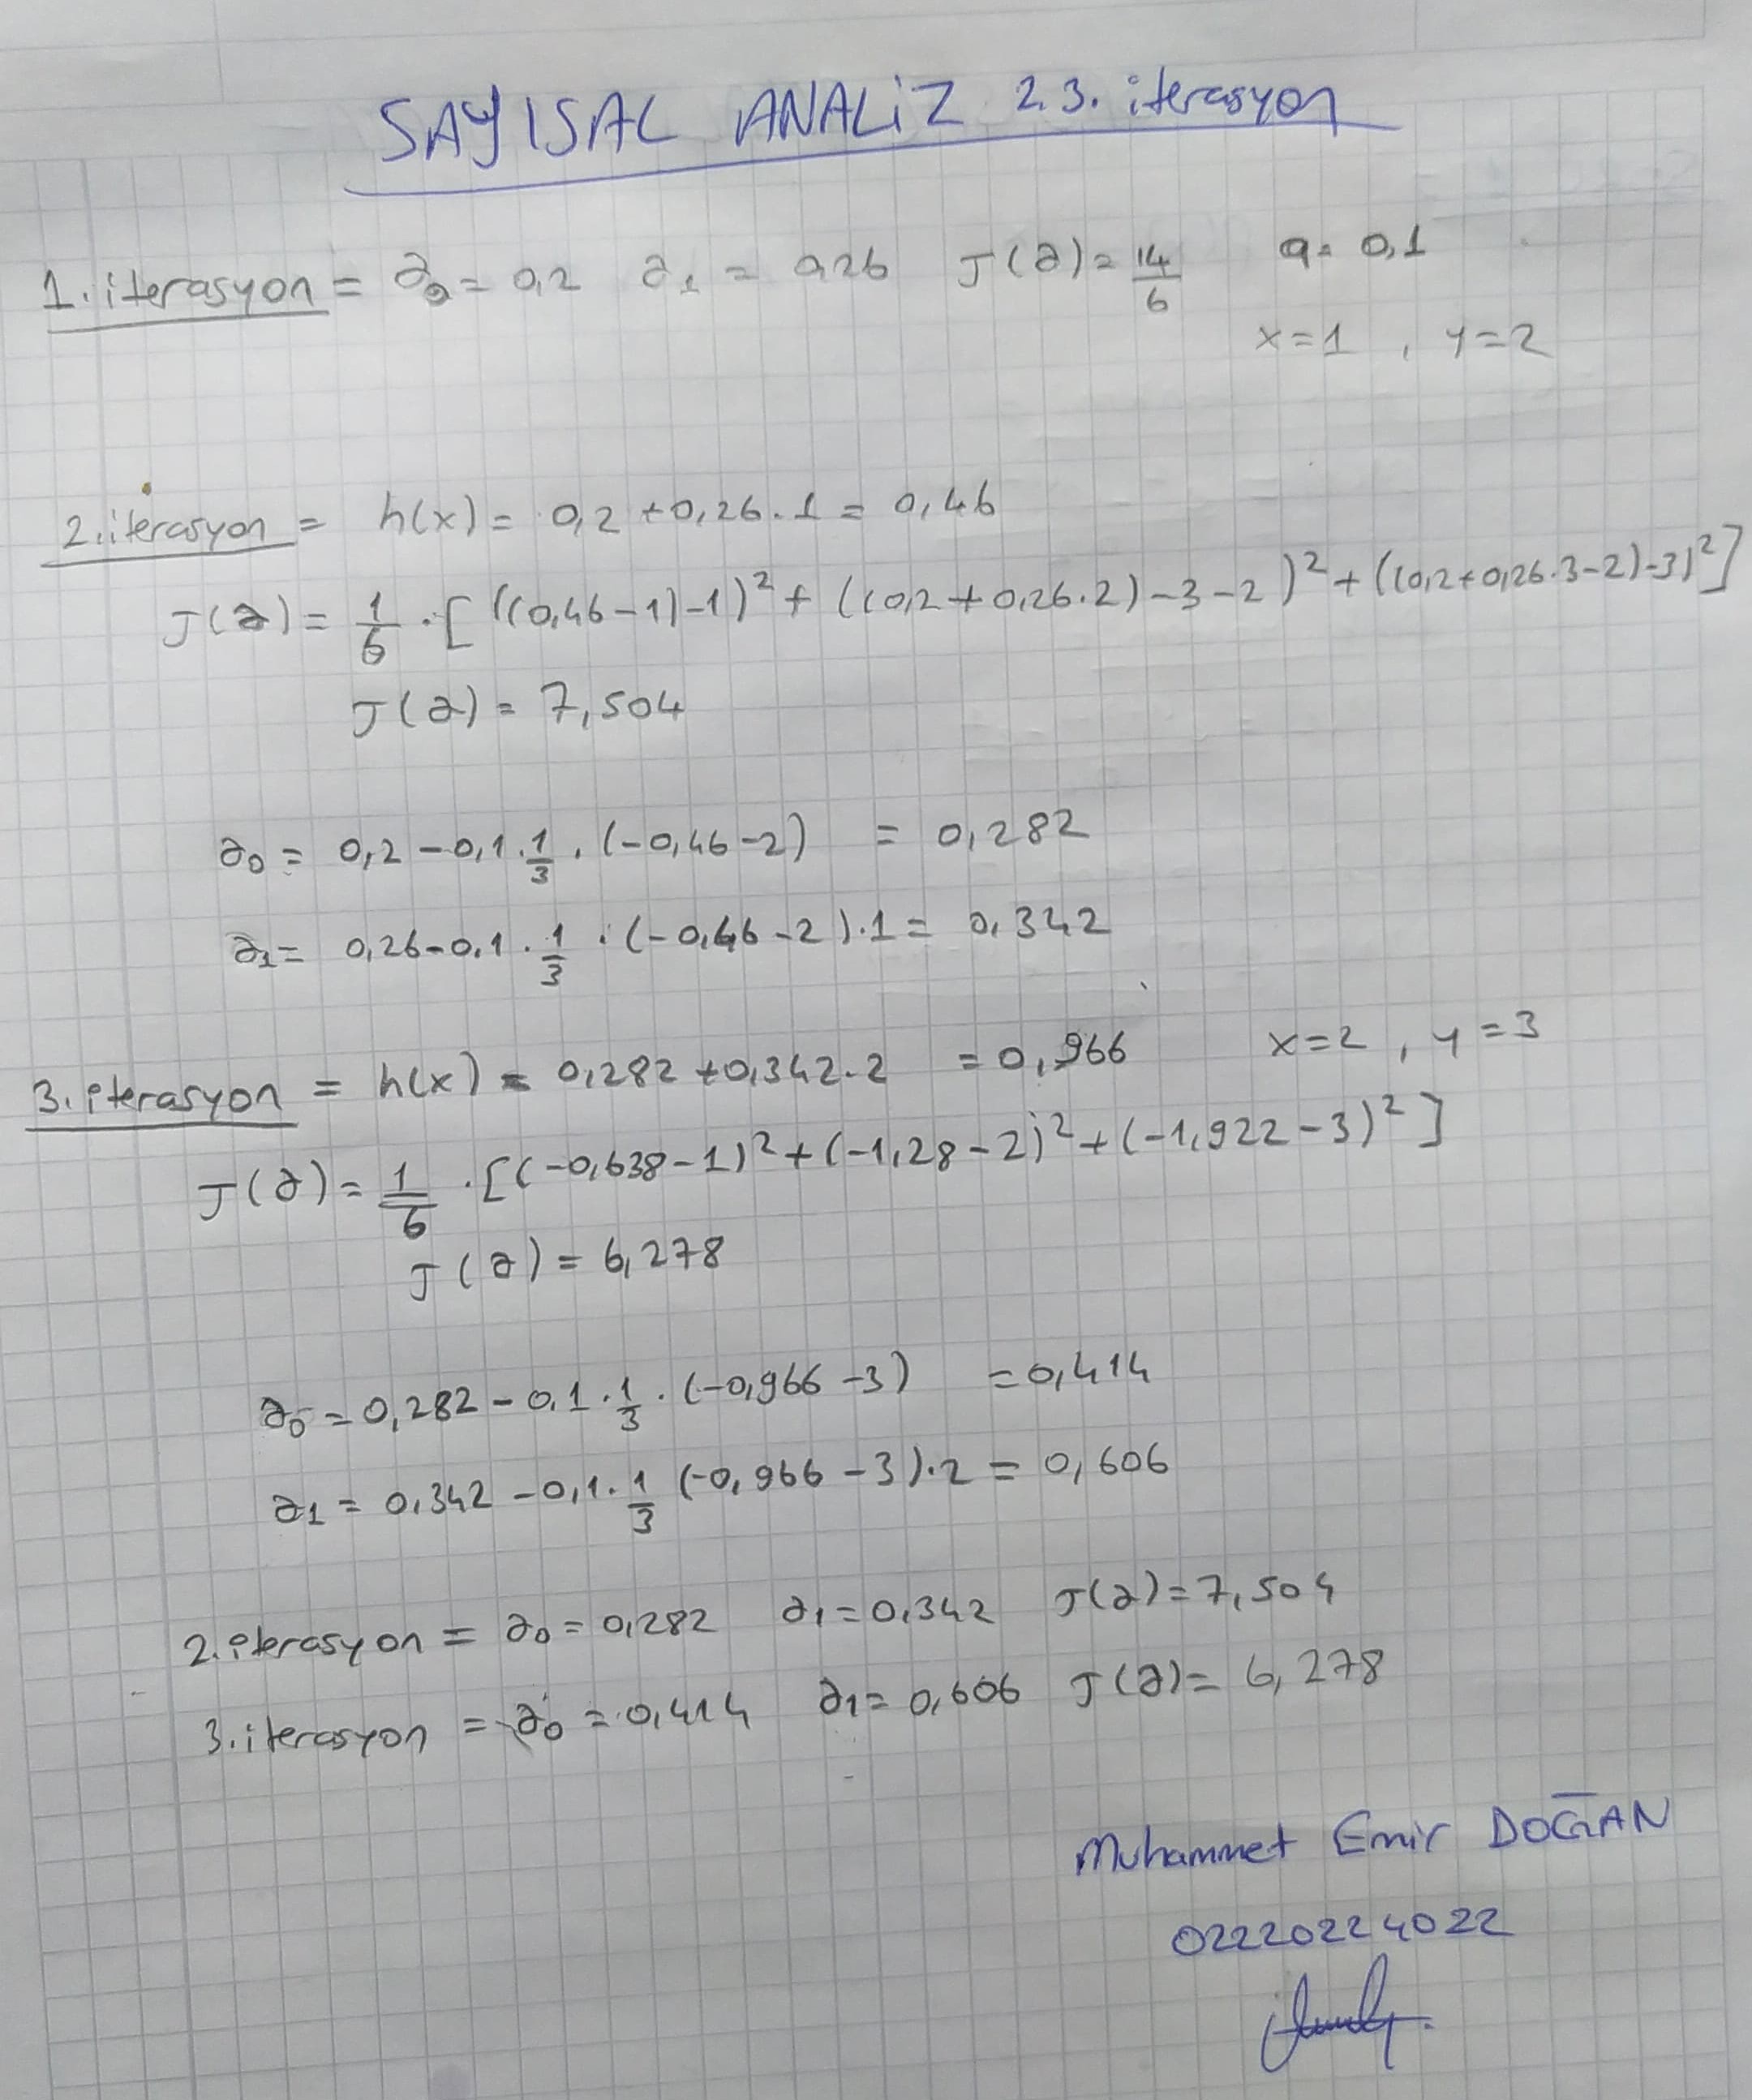 SAYISAL ANALİZ 2.3. iterasyon
1. iterasyon = ∂₀ = 0,2 ∂₁ = 0,26 J(∂) = 14/6 α = 0,1
x=1 , y=2
2. iterasyon = h(x) = 0,2 + 0,26.1 = 0,46
J(∂) = 1/6 . [ ((0,46-1)-1)² + ((0,2+0,26.2)-3-2)² + ((0,2+0,26.3-2)-3)² ]
J(∂) = 7,504
∂₀ = 0,2 - 0,1 . 1/3 . (-0,46-2) = 0,282
∂₁ = 0,26 - 0,1 . 1/3 . (-0,46-2).1 = 0,342
3. iterasyon = h(x) = 0,282 + 0,342.2 = 0,966 x=2 , y=3
J(∂) = 1/6 . [(-0,638-1)² + (-1,28-2)² + (-1,922-3)²]
J(∂) = 6,278
∂₀ = 0,282 - 0,1 . 1/3 . (-0,966-3) = 0,414
∂₁ = 0,342 - 0,1 . 1/3 (-0,966-3).2 = 0,606
2. iterasyon = ∂₀ = 0,282 ∂₁ = 0,342 J(∂) = 7,504
3. iterasyon = ∂₀ = 0,414 ∂₁ = 0,606 J(∂) = 6,278
Muhammet Emir DOĞAN
02220224022